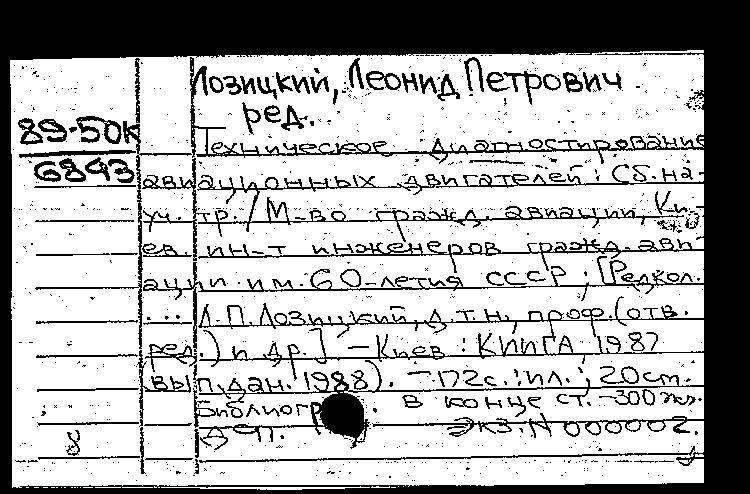 Лозицкий, Леонид Петрович
ред.
89-50К
6843
Техническое диагностирование
авиационных двигателей : Сб. на-
уч. тр. / М-во гражд. авиации, Ки-
ев. ин-т инженеров гражд. ави-
ации им. 60-летия СССР ; [Редкол.
... Л.П. Лозицкий, д.т.н., проф. (отв.
ред.) и др.] - Киев : КИИГА, 1987
(вып. дан. 1988). - 172 с. : ил. ; 20 см.
Библиогр. в конце ст. - 300 экз.
Экз. N 000002.
8